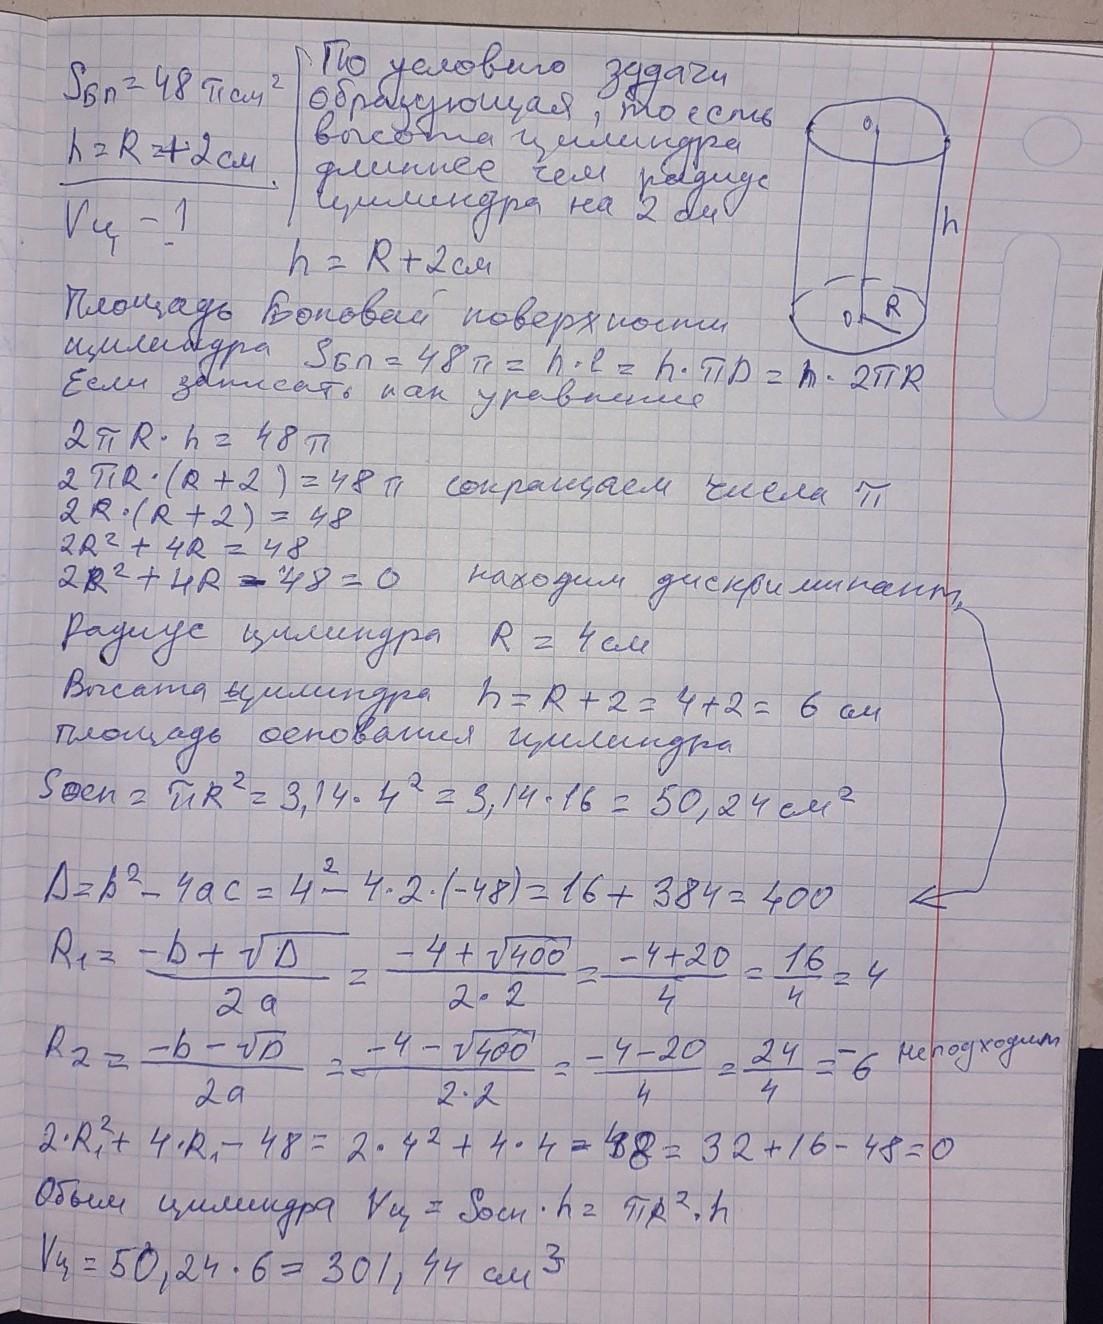 Sбп = 48 π см²
h = R = + 2 см
Vц - ?
По условию задачи
образующая, то есть
высота цилиндра
длиннее чем радиус
цилиндра на 2 см
h = R + 2 см
O
h
O R
Площадь боковой поверхности
цилиндра Sбп = 48 π = h · l = h · πD = h · 2πR
Если записать как уравнение
2πR · h = 48π
2πR · (R + 2) = 48π сокращаем числа π
2R · (R + 2) = 48
2R² + 4R = 48
2R² + 4R - 48 = 0 находим дискриминант,
Радиус цилиндра R = 4 см
Высата цилиндра h = R + 2 = 4 + 2 = 6 см
площадь основания цилиндра
Sосн = πR² = 3,14 · 4² = 3,14 · 16 = 50,24 см²
D = b² - 4ac = 4² - 4 · 2 · (-48) = 16 + 384 = 400
R₁ = (-b + √D)/2a = (-4 + √400)/(2·2) = (-4+20)/4 = 16/4 = 4
R₂ = (-b - √D)/2a = (-4 - √400)/(2·2) = (-4-20)/4 = 24/4 = -6 неподходит
2·R₁² + 4·R₁ - 48 = 2 · 4² + 4 · 4 - 48 = 32 + 16 - 48 = 0
Обьём цилиндра Vц = Sосн · h = πR² · h
Vц = 50,24 · 6 = 301,44 см³